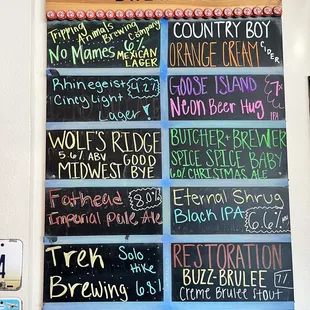 Tripping
Animals Brewing
Company
No Mames 6%
MEXICAN
LAGER
COUNTRY BOY
ORANGE CREAM CIDER
Rhinegeist 4.2%
Cincy Light
Lager!
GOOSE ISLAND 7%
Neon Beer Hug
IPA
WOLF'S RIDGE
5.6% ABV GOOD
MIDWEST BYE
BUTCHER + BREWER
SPICE SPICE BABY
CHRISTMAS ALE
Fathead 8.0%
Imperial Pale Ale
Eternal Shrug
Black IPA 6.6%
Trek Solo
Hike
Brewing 6.8%
RESTORATION
BUZZ-BRULEE
Creme Brulee Stout